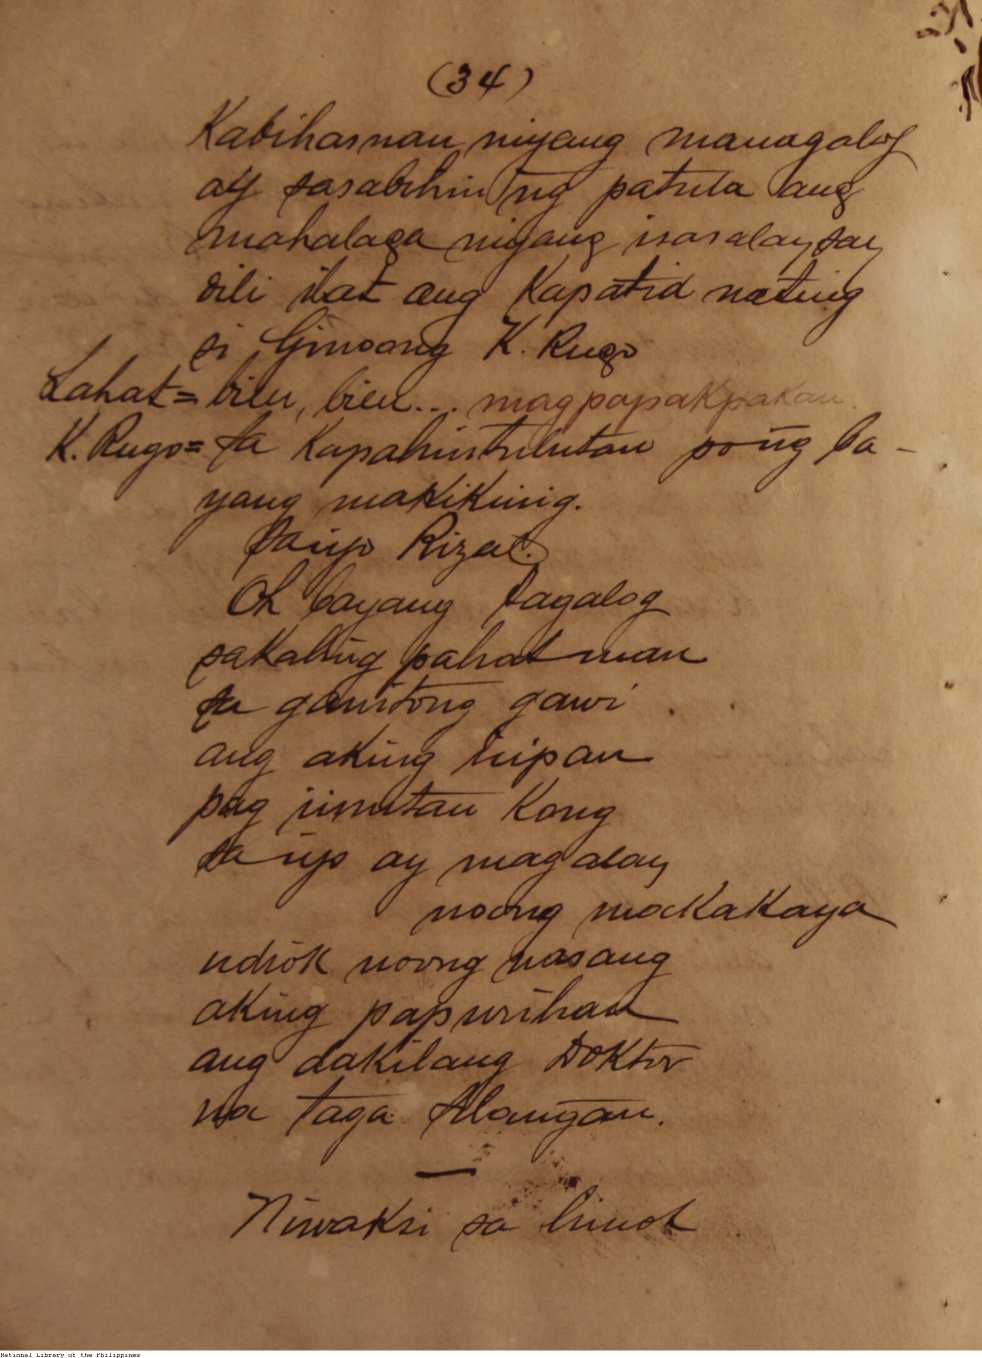 (34)
Kabihasnan niyang managalog
ay sasabihin ng patula ang
mahalaga niyang isasalaysay
dili ibat ang Kapatid nating
si Ginoong K. Rugo
Lahat = bien, bien... magpapakpakan.
K. Rugo = Sa Kapahintulutan po ng ba-
yang makikinig.
Sa iyo Rizal.
Oh bayang tagalog
sakaling pahat man
sa ganitong gawi
ang aking isipan
pag iimutan Kong
sa iyo ay magalay
noong makakaya
udiok noong nasang
aking papurihan
ang dakilang Doktor
na taga
Niwaksi sa limot
National Library of the Philippines